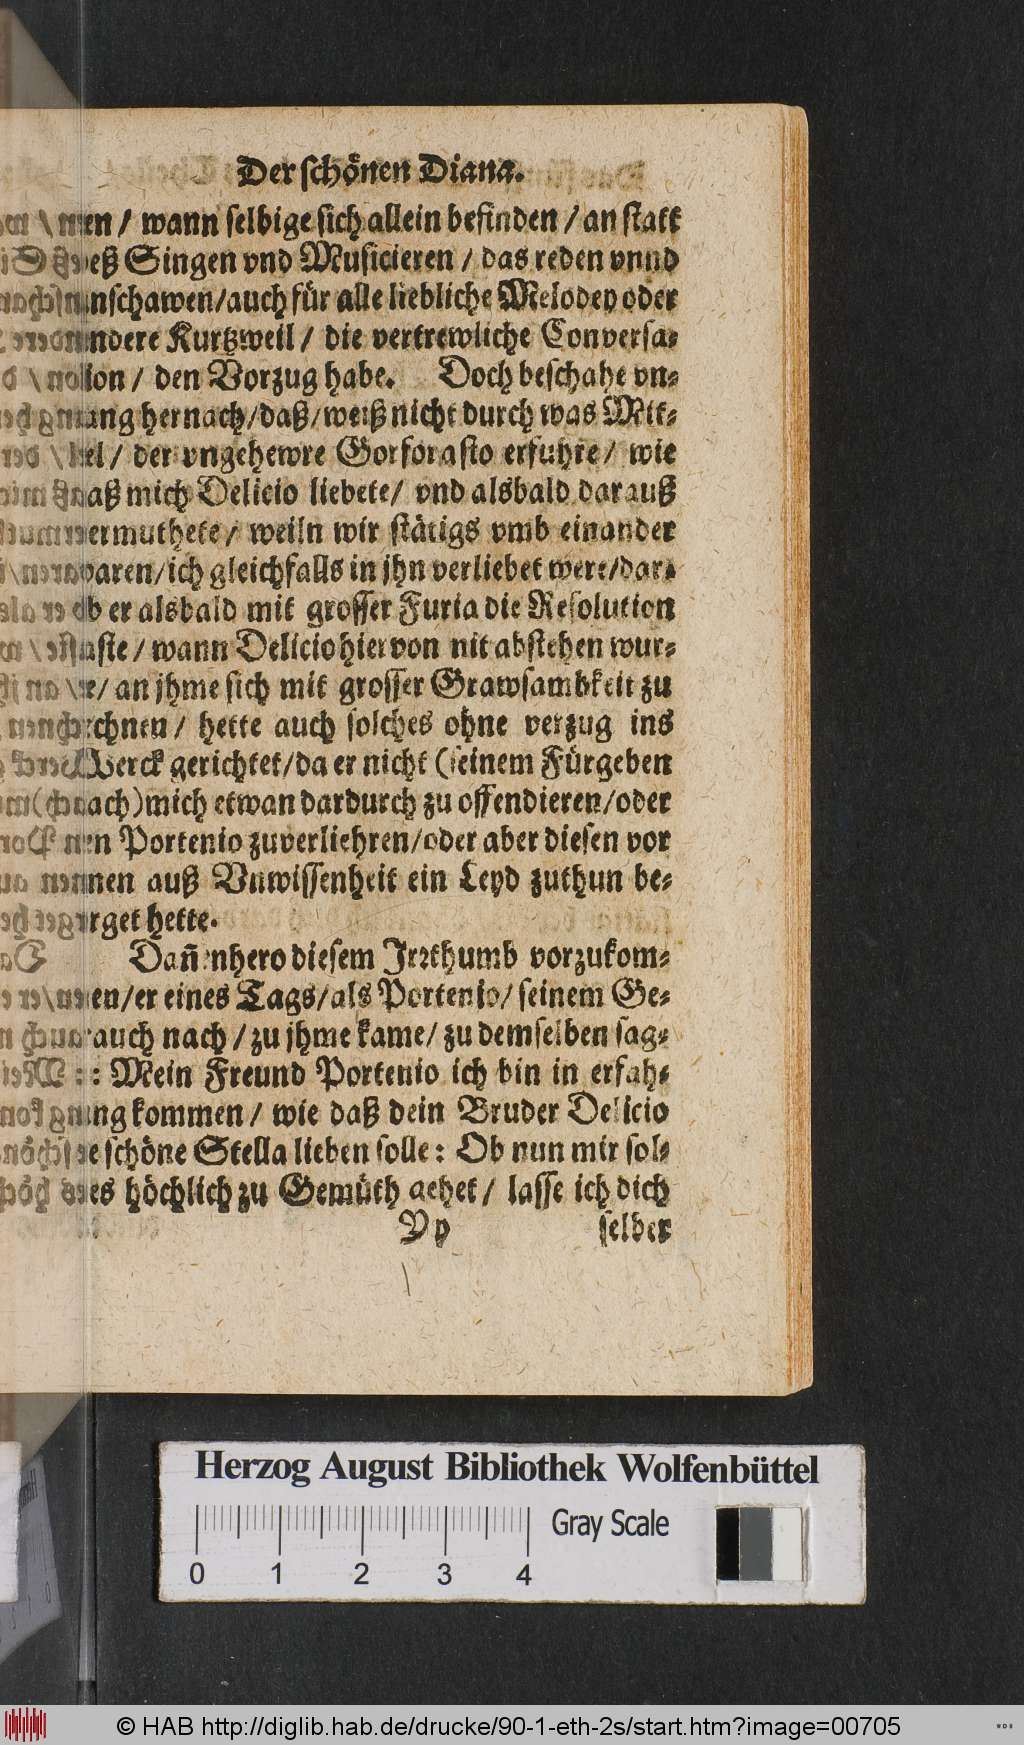 Der schönen Diana.
nen / wann selbige sich allein befinden / an statt
deß Singen vnd Musicieren / das reden vnnd
anschawen/auch für alle liebliche Melodey oder
andere Kurtzweil / die vertrewliche Conversa-
tion / den Vorzug habe. Doch beschahe vn-
lang hernach/daß/weiß nicht durch was Mit-
tel / der vngehewre Gorforasto erfuhre / wie
daß mich Delicio liebete/ vnd alsbald darauß
vermuthete / weiln wir stätigs vmb einander
waren/ich gleichfalls in jhn verliebet were/dar-
ob er alsbald mit grosser Furia die Resolution
faste / wann Delicio hiervon nit abstehen wur-
de/ an jhme sich mit grosser Grawsambkeit zu
rechnen / hette auch solches ohne verzug ins
Werck gerichtet/da er nicht (seinem Fürgeben
nach) mich etwan dardurch zu offendieren/oder
den Portenio zuverliehren/oder aber diesen vor
jennen auß Vnwissenheit ein Leyd zuthun be-
sorget hette.
Dañenhero diesem Irrthumb vorzukom-
men/er eines Tags/als Portenio/ seinem Ge-
brauch nach / zu jhme kame/ zu demselben sag-
te: Mein Freund Portenio ich bin in erfah-
rung kommen / wie daß dein Bruder Delicio
die schöne Stella lieben solle: Ob nun mir sol-
ches höchlich zu Gemüth gehet / lasse ich dich
Vy selber
Herzog August Bibliothek Wolfenbüttel
0 1 2 3 4 Gray Scale
© HAB http://diglib.hab.de/drucke/90-1-eth-2s/start.htm?image=00705